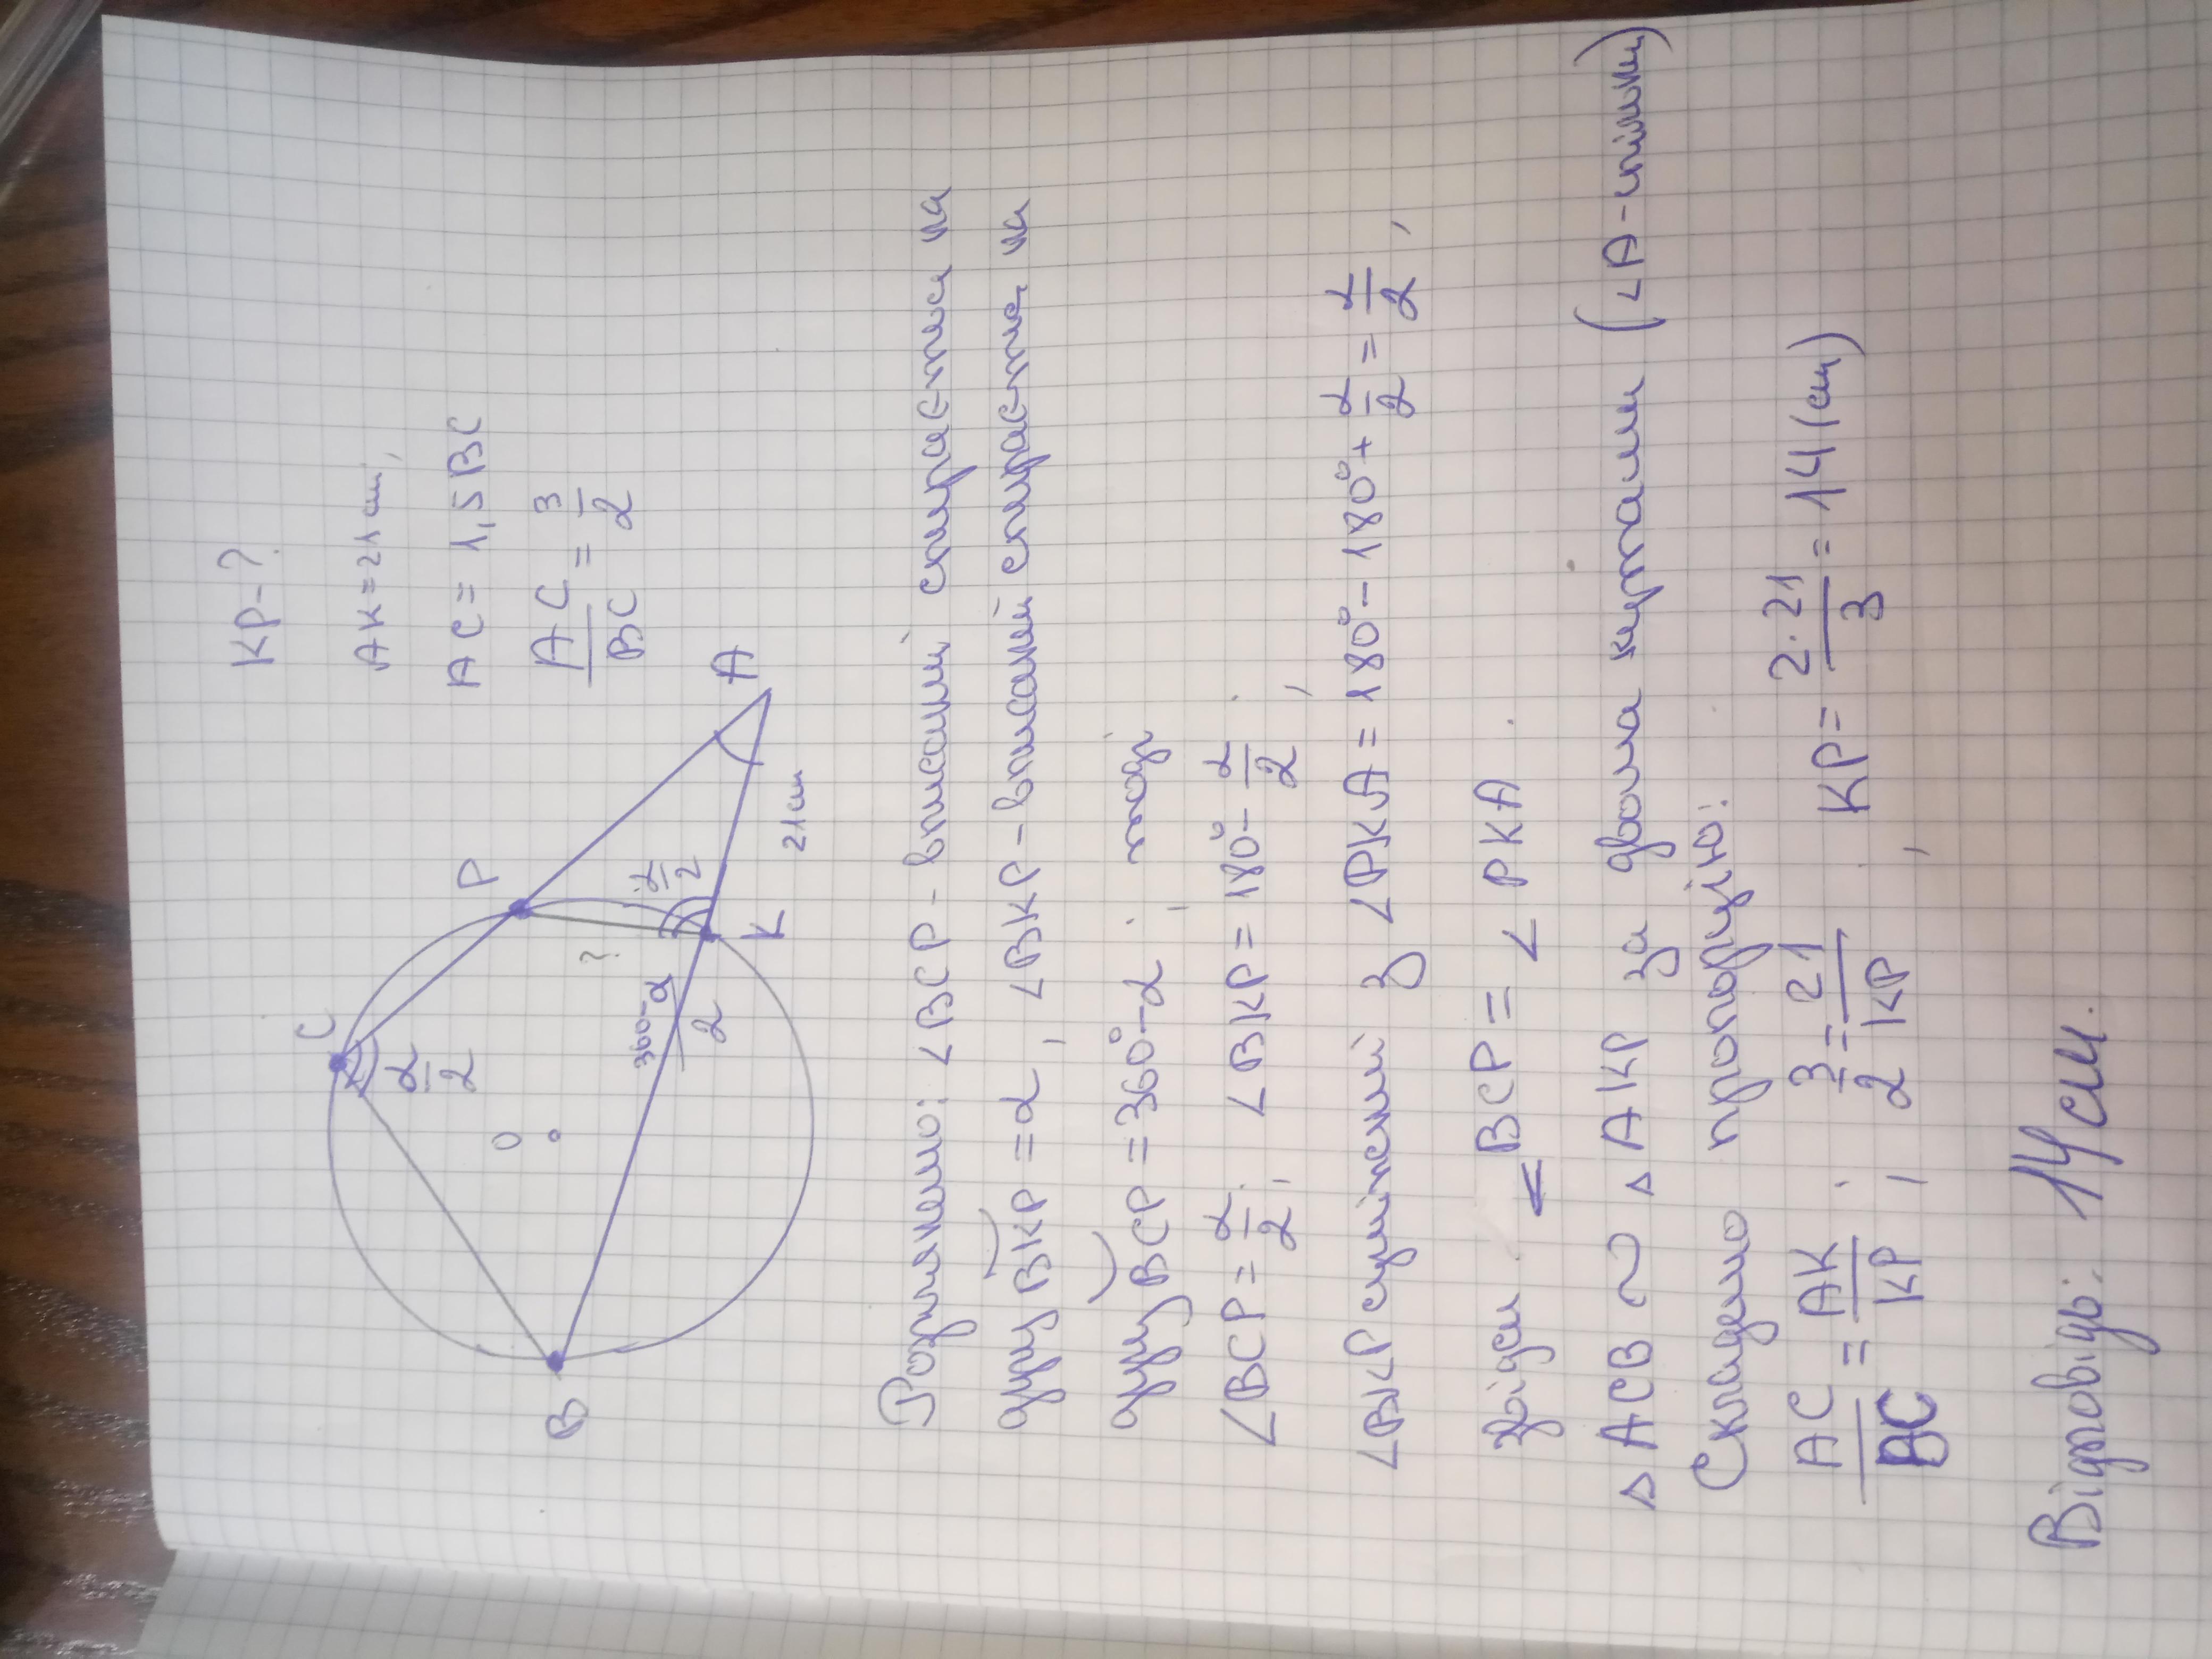 KP-?
AK=21 см,
AC = 1,5 BC
AC/BC = 3/2
C
P
α/2
?
α/2
A
O
360-α/2
K
21 см
B
Розглянемо: ∠BCP - вписаний спирається на
дугу BKP = α, ∠BKP - вписаний спирається на
дугу BCP = 360°-α; тоді
∠BCP = α/2; ∠BKP = 180° - α/2;
∠BKP суміжний з ∠PKA = 180° - 180° + α/2 = α/2,
звідси ∠BCP = ∠PKA.
△ACB ~ △AKP за двома кутами (∠A-спільний)
Складемо пропорцію:
AC/BC = AK/KP; 3/2 = 21/KP; KP = 2·21/3 = 14 (см)
Відповідь: 14 см.